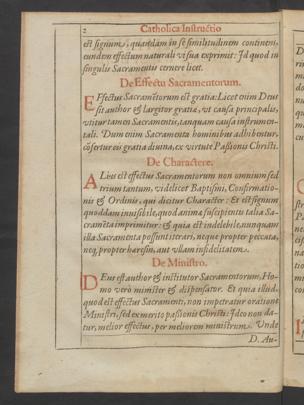 2 Catholica Instructio
est signum, quandam in se similitudinem continens,
eundem effectum naturali vi sua exprimit: Id quod in
singulis Sacramentis cernere licet.
De Effectu Sacramentorum.
Effectus Sacramẽtorum est gratia: Licet enim Deus
sit author & largitor gratiæ, vt causa principalis,
vtitur tamen Sacramentis, tanquam causa instrumen-
tali. Dum enim Sacramenta hominibus adhibentur,
cõfertur eis gratia diuina, ex virtute Passionis Christi.
De Charactere.
Alius est effectus Sacramentorum non omnium sed
trium tantum, videlicet Baptismi, Confirmatio-
nis & Ordinis, qui dicitur Character: Et est signum
quoddam inuisibile, quod anima suscipientis talia Sa-
cramẽta imprimitur: & quia est indelebile, nunquam
illa Sacramenta possunt iterari, neque propter peccata,
neq; propter hæresin, aut vllam infidelitatem.
De Ministro.
Deus est author & institutor Sacramentorum, Ho-
mo verò minister & dispensator. Et quia illud,
quod est effectus Sacramenti, non impetratur oratione
Ministri, sed ex merito passionis Christi: Ideo non da-
tur, melior effectus, per meliorem ministrum. Vnde
D. Au-